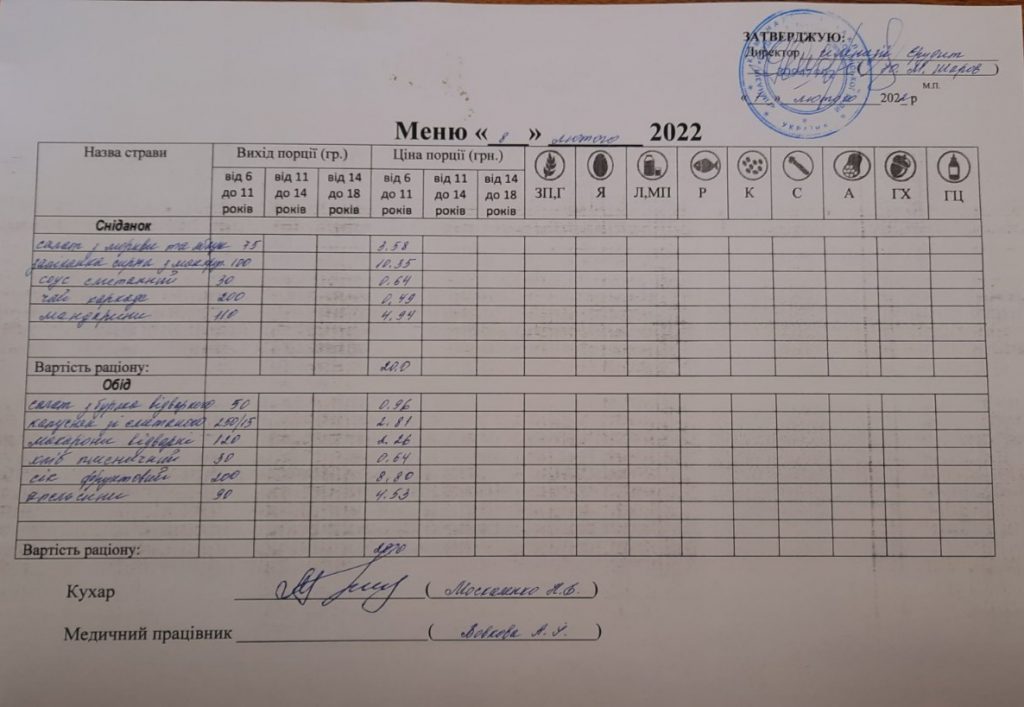 ЗАТВЕРДЖУЮ:
Директор гімназії Ерудит
( Ю. М. Шаров )
м.п.
« 7 » лютого 2022 р
УКРАЇНА
Меню « 8 » лютого 2022
Назва страви Вихід порції (гр.) Ціна порції (грн.)
від 6 до 11 років від 11 до 14 років від 14 до 18 років від 6 до 11 років від 11 до 14 років від 14 до 18 років ЗП,Г Я Л,МП Р К С А ГХ ГЦ
Сніданок
салат з моркви та яблук 75 3.58
запіканка сирна з 100 10.35
соус сметанний 30 0.64
чай каркаде 200 0,49
мандарини 110 4.94
Вартість раціону: 20.0
Обід
салат з буряка відварного 50 0.96
капусняк зі сметаною 250/15 2.81
макарони відварні 120 2.26
хліб пшеничний 30 0.64
сік фруктовий 200 8,80
апельсини 90 4.53
Вартість раціону:
Кухар ( Н.В. )
Медичний працівник ( Вовкова А. )